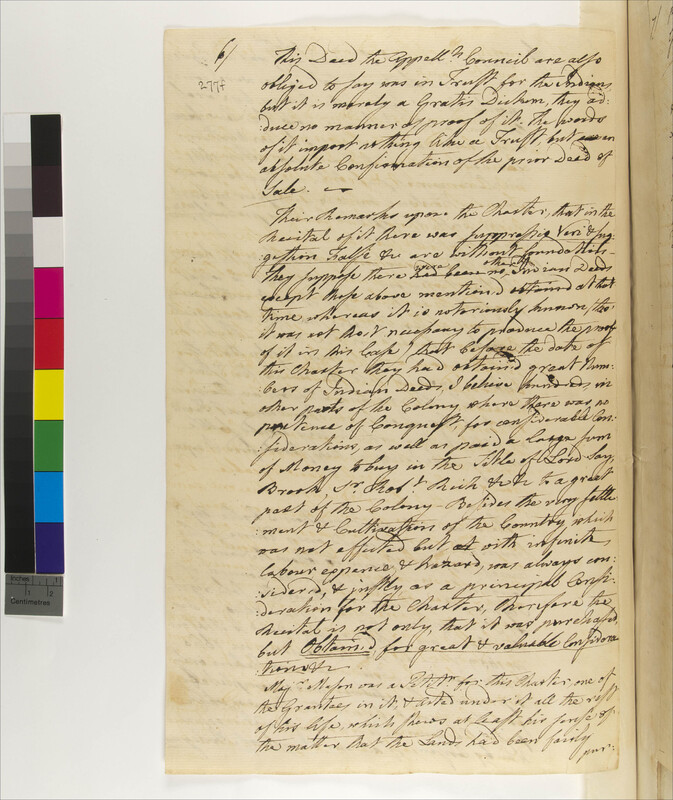 6/
277f
This Deed the Appell.ts Council are also
obliged to say was in Trust for the Indians
but it is merely a Gratis Dictum, they ad:
:duce no manner of proof of it. The words
of it import nothing like a Trust, but an
absolute Confirmation of the prior Deed of
Sale.
Their Remarks upon the Charter, that in the
Recital of it there was suppressio Veri & sug
gestion Falsi &c are without foundation
They suppose there were no other Indian Deeds
except those above mentiond obtained at that
time whereas it is notoriously known (tho'
it was not tho't necessary to produce the proof
of it in this Case) that before the date of
this Charter they had obtaind great Num:
:bers of Indian Deeds, I believe hundreds in
other parts of the Colony where there was no
pretence of Conquest, for considerable Con:
:siderations, as well as paid a Large sum
of Money to buy in the Title of Lord Say,
Brook, Sr. Robt. Rich &c &c to a great
part of the Colony Besides the very settle
ment & Cultivation of the Country, which
was not effected but with infinite
labour expence & hazard, was always con:
:siderd, & justly as a principal Consi:
:deration for the Charter, Therefore the
Recital is not only, that it was purchased,
but Obtained, for great & valuable Considera
tions &c
Majr. Mason was a Petitr. for this Charter one of
the Grantees in it, & acted under it all the rest
of his life, which shews at Least his sense of
the matter that the Lands had been fairly
pur:
Inches
1
2
Centimetres